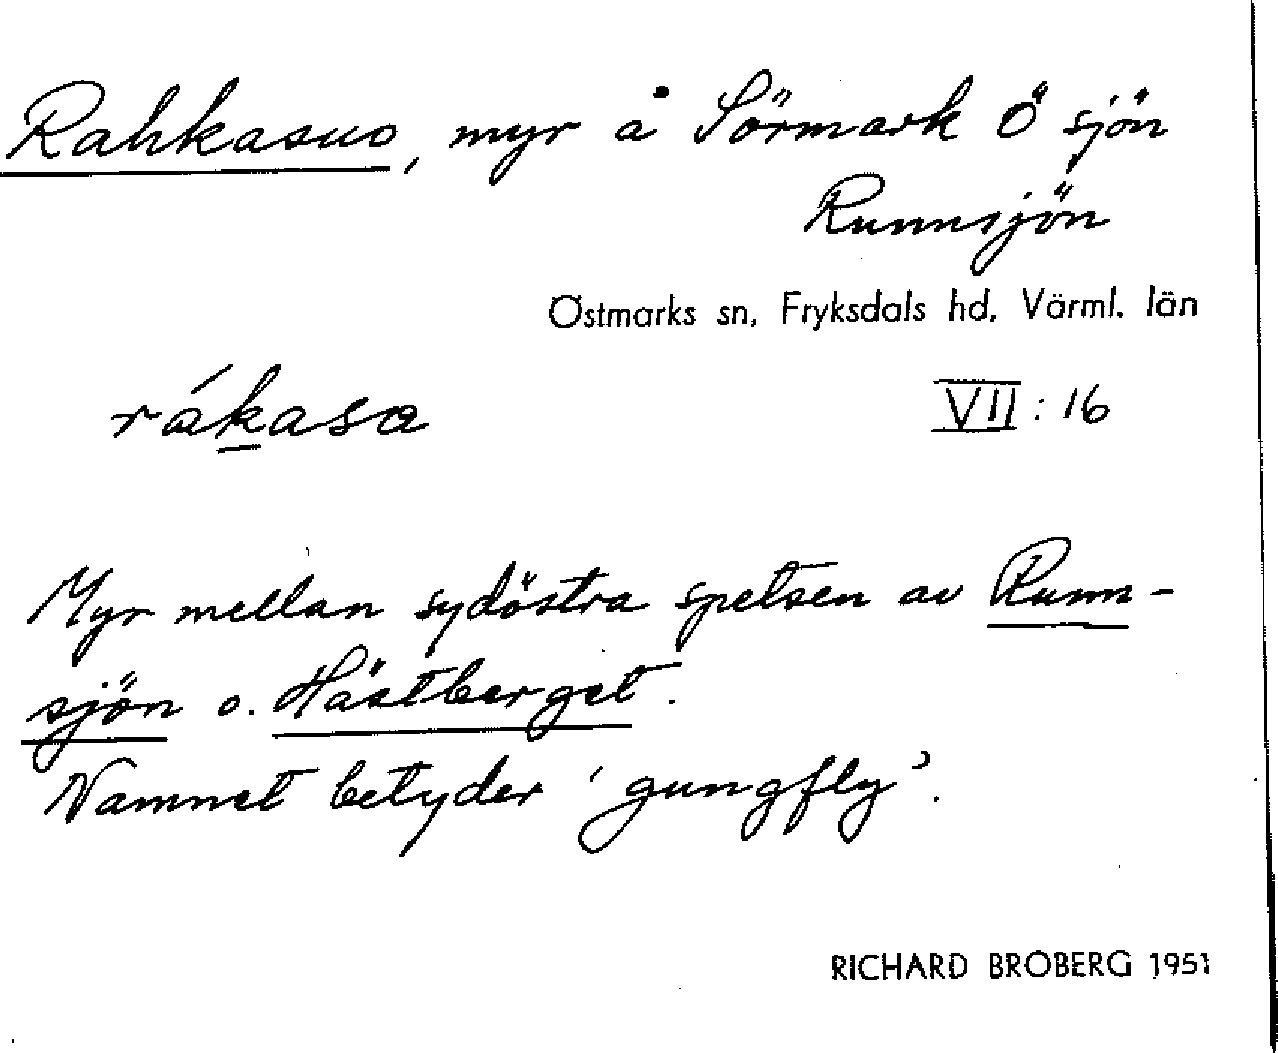 Rahkasuo, myr å Sörmark Ö sjön
Runnsjön
Östmarks sn, Fryksdals hd. Värml. län
rákasa VII : 16
Myr mellan sydöstra spetsen av Runn-
sjön o. Hästberget.
Namnet betyder 'gungfly'.
RICHARD BROBERG 1951